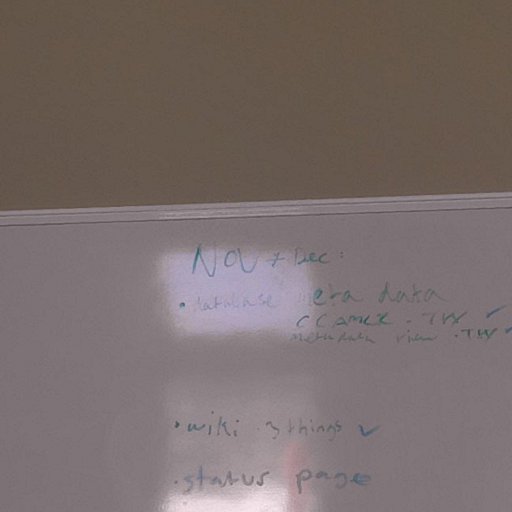 Nov + Dec:
• database meta data
TW ✓
metadata view • TW ✓
• wiki 3 things ✓
• status page